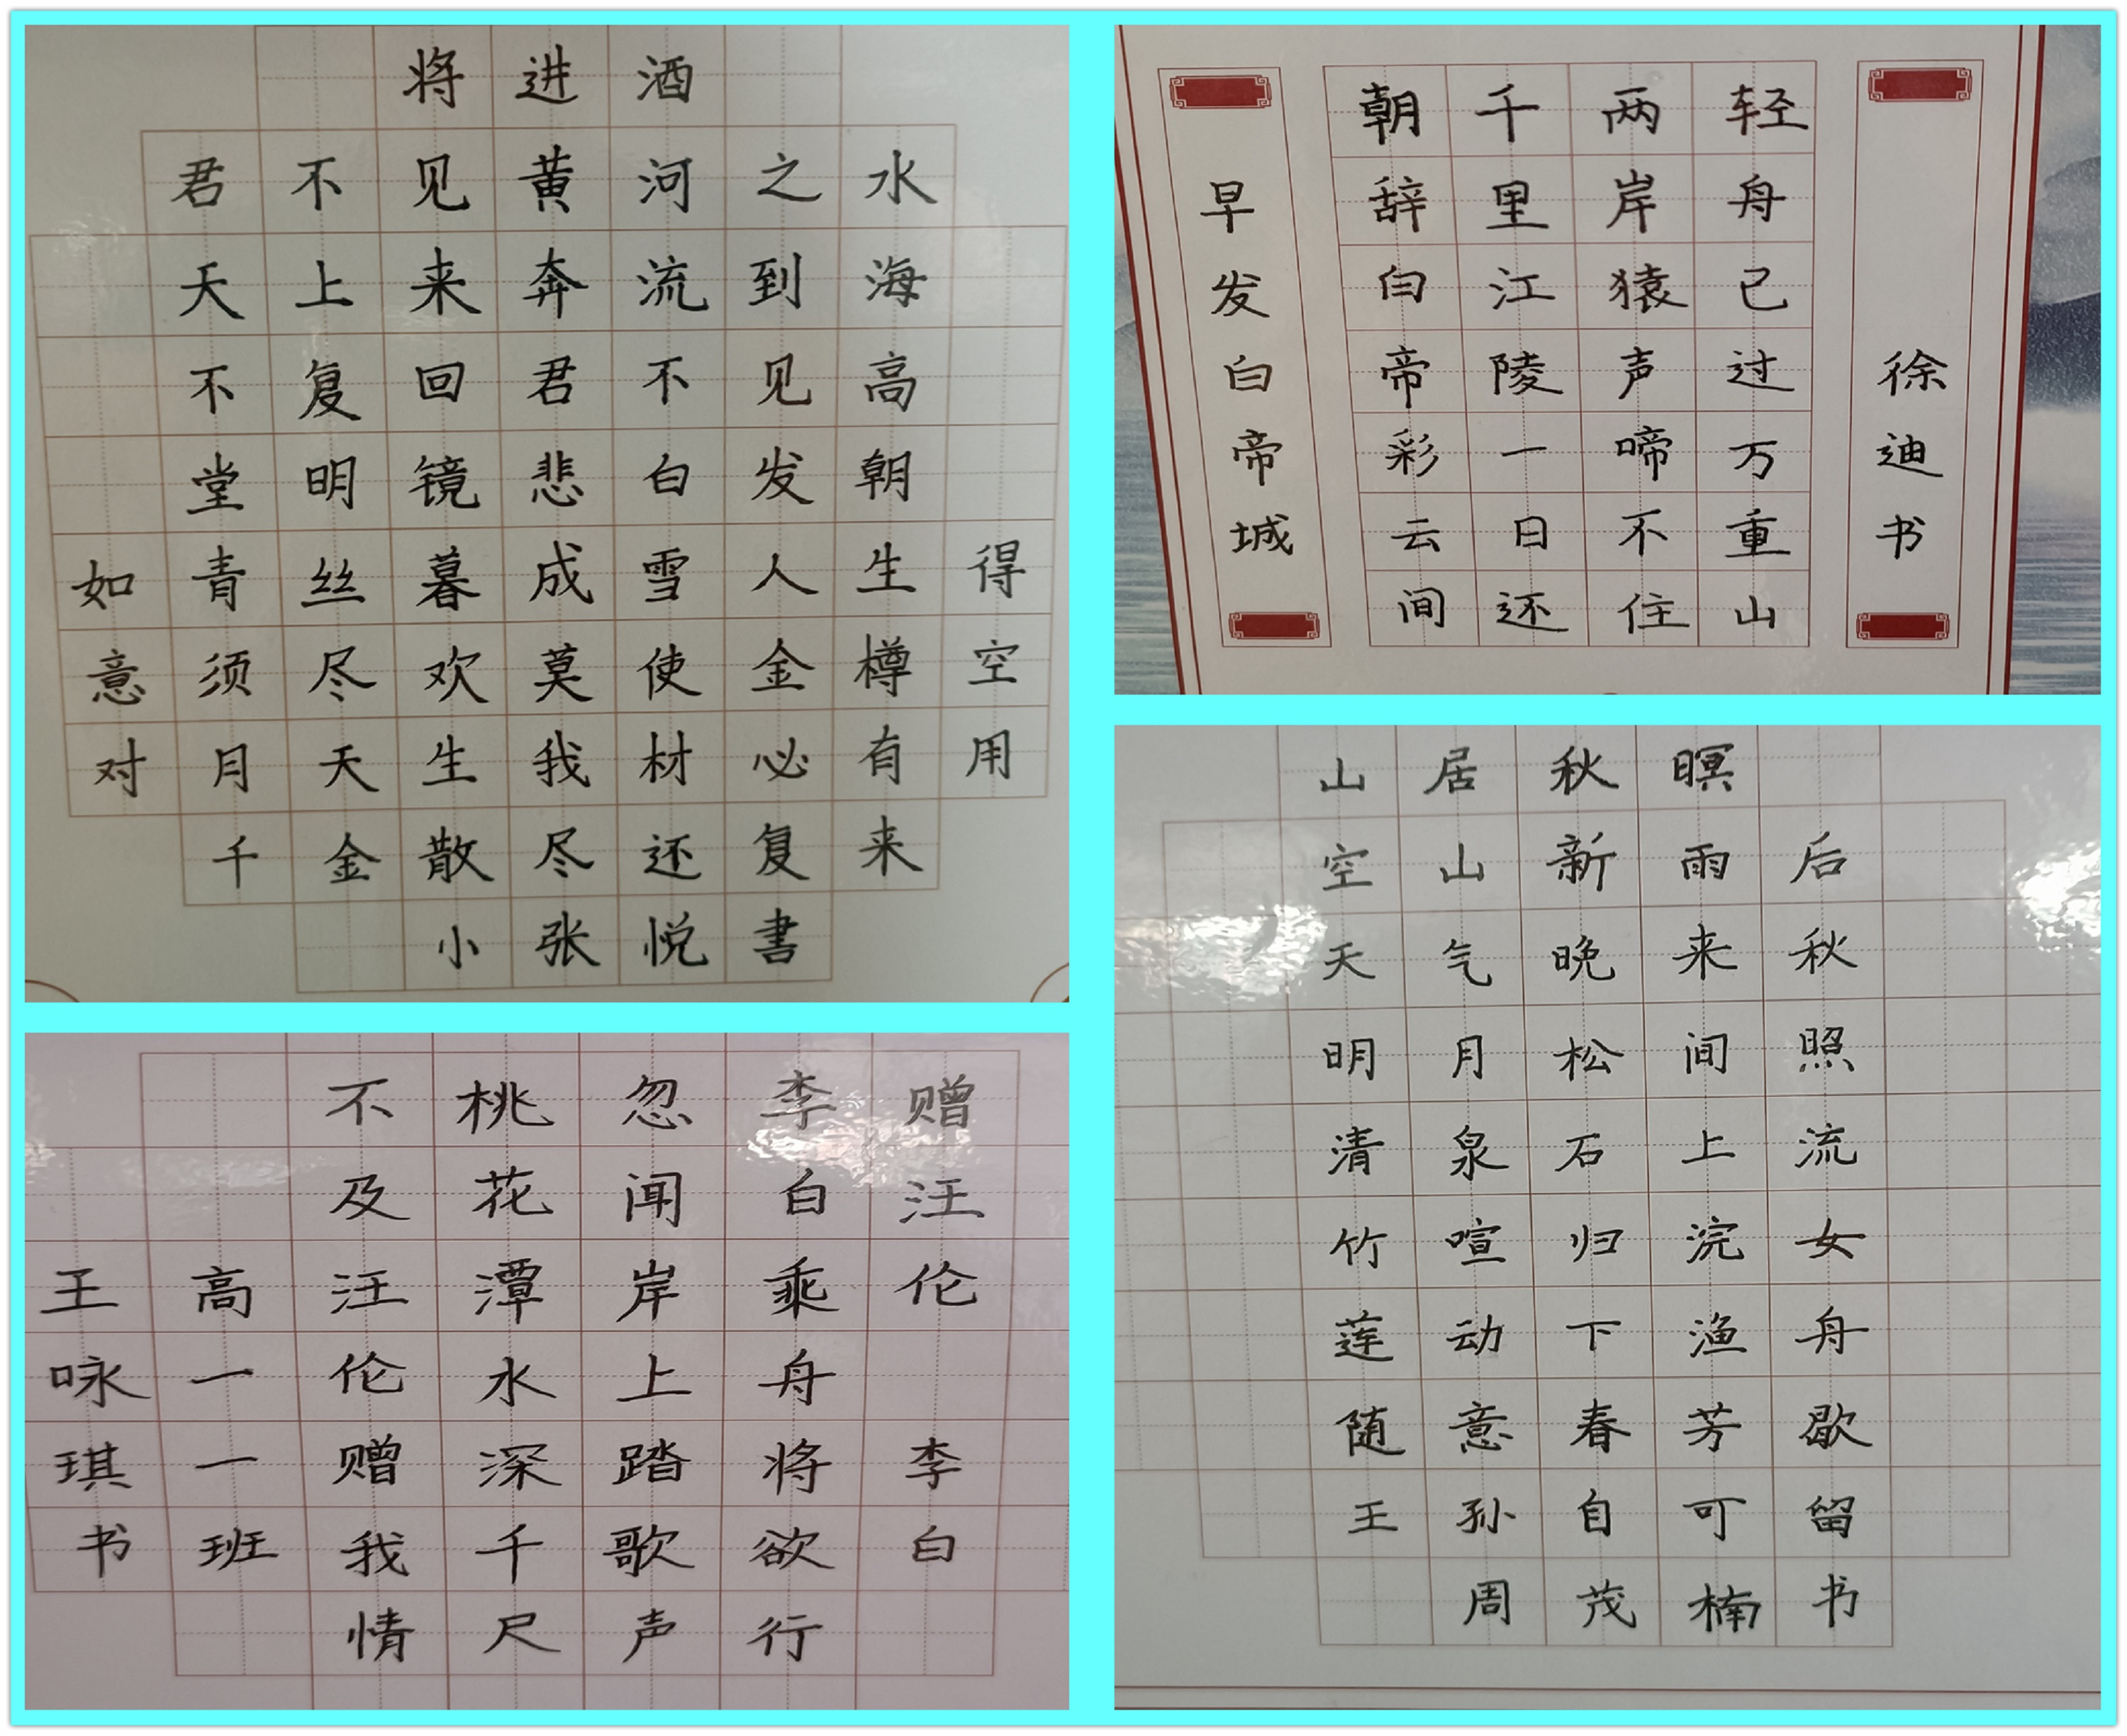 将进酒
君不见黄河之水
天上来奔流到海
不复回君不见高
堂明镜悲白发朝
如青丝暮成雪人生得
意须尽欢莫使金樽空
对月天生我材必有用
千金散尽还复来
小张悦書
早发白帝城
朝辞白帝彩云间
千里江陵一日还
两岸猿声啼不住
轻舟已过万重山
徐迪书
赠汪伦 李白
李白乘舟将欲行
忽闻岸上踏歌声
桃花潭水深千尺
不及汪伦赠我情
高一一班
王咏琪书
山居秋暝
空山新雨后
天气晚来秋
明月松间照
清泉石上流
竹喧归浣女
莲动下渔舟
随意春芳歇
王孙自可留
周茂楠书